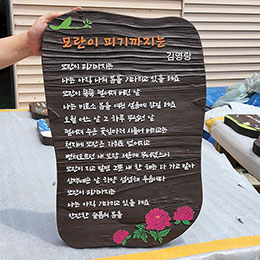 모란이 피기까지는
김영랑
모란이 피기까지는
나는 아직 나의 봄을 기다리고 있을 테요
모란이 뚝뚝 떨어져 버린 날
나는 비로소 봄을 여읜 설움에 잠길 테요
오월 어느 날 그 하루 무덥던 날
떨어져 누운 꽃잎마저 시들어 버리고는
천지에 모란은 자취도 없어지고
뻗쳐오르던 내 보람 서운케 무너졌느니
모란이 지고 말면 그뿐 내 한 해는 다 가고 말아
삼백예순 날 하냥 섭섭해 우옵내다
모란이 피기까지는
나는 아직 기다리고 있을 테요
찬란한 슬픔의 봄을